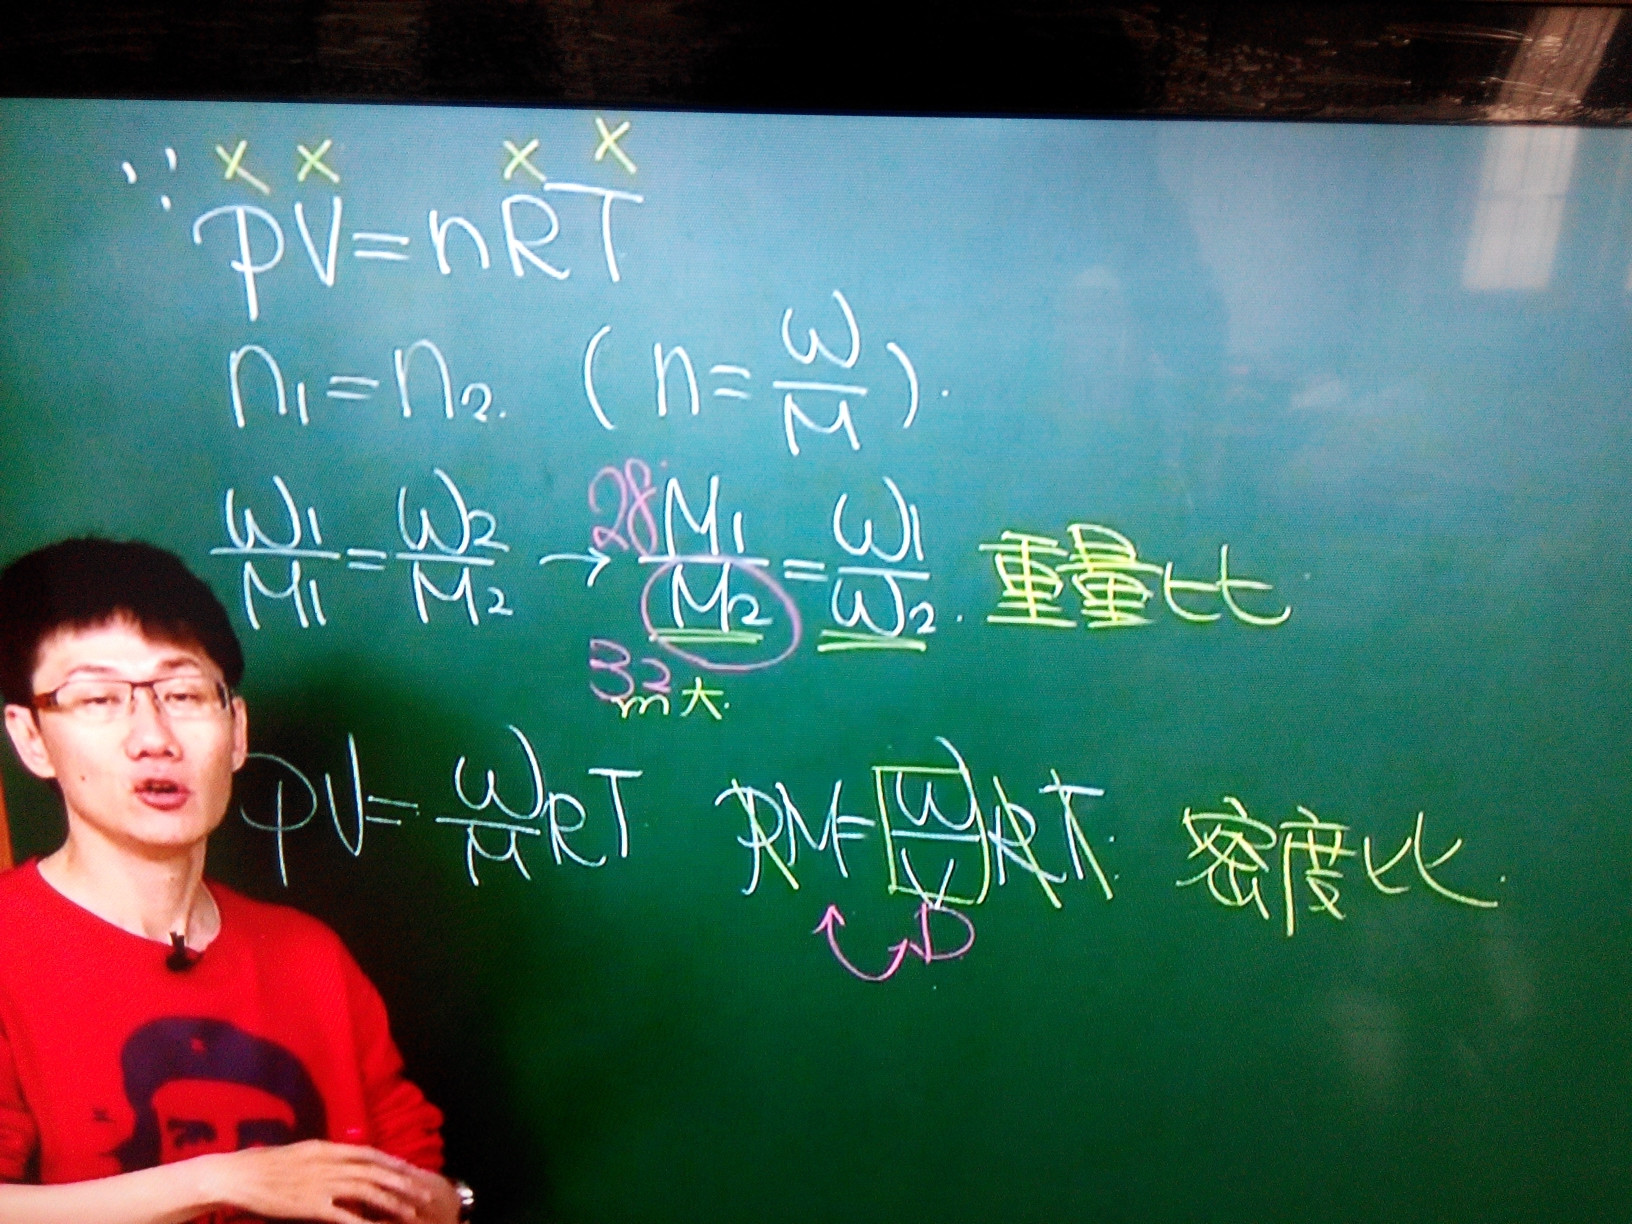 ∵ × × × ×
PV=nRT
n₁=n₂. (n=W/M).
W₁/M₁=W₂/M₂→28 M₁/M₂=W₁/W₂. 重量比
32
m大.
PV=W/M RT PM=W/V RT. 密度比.
D